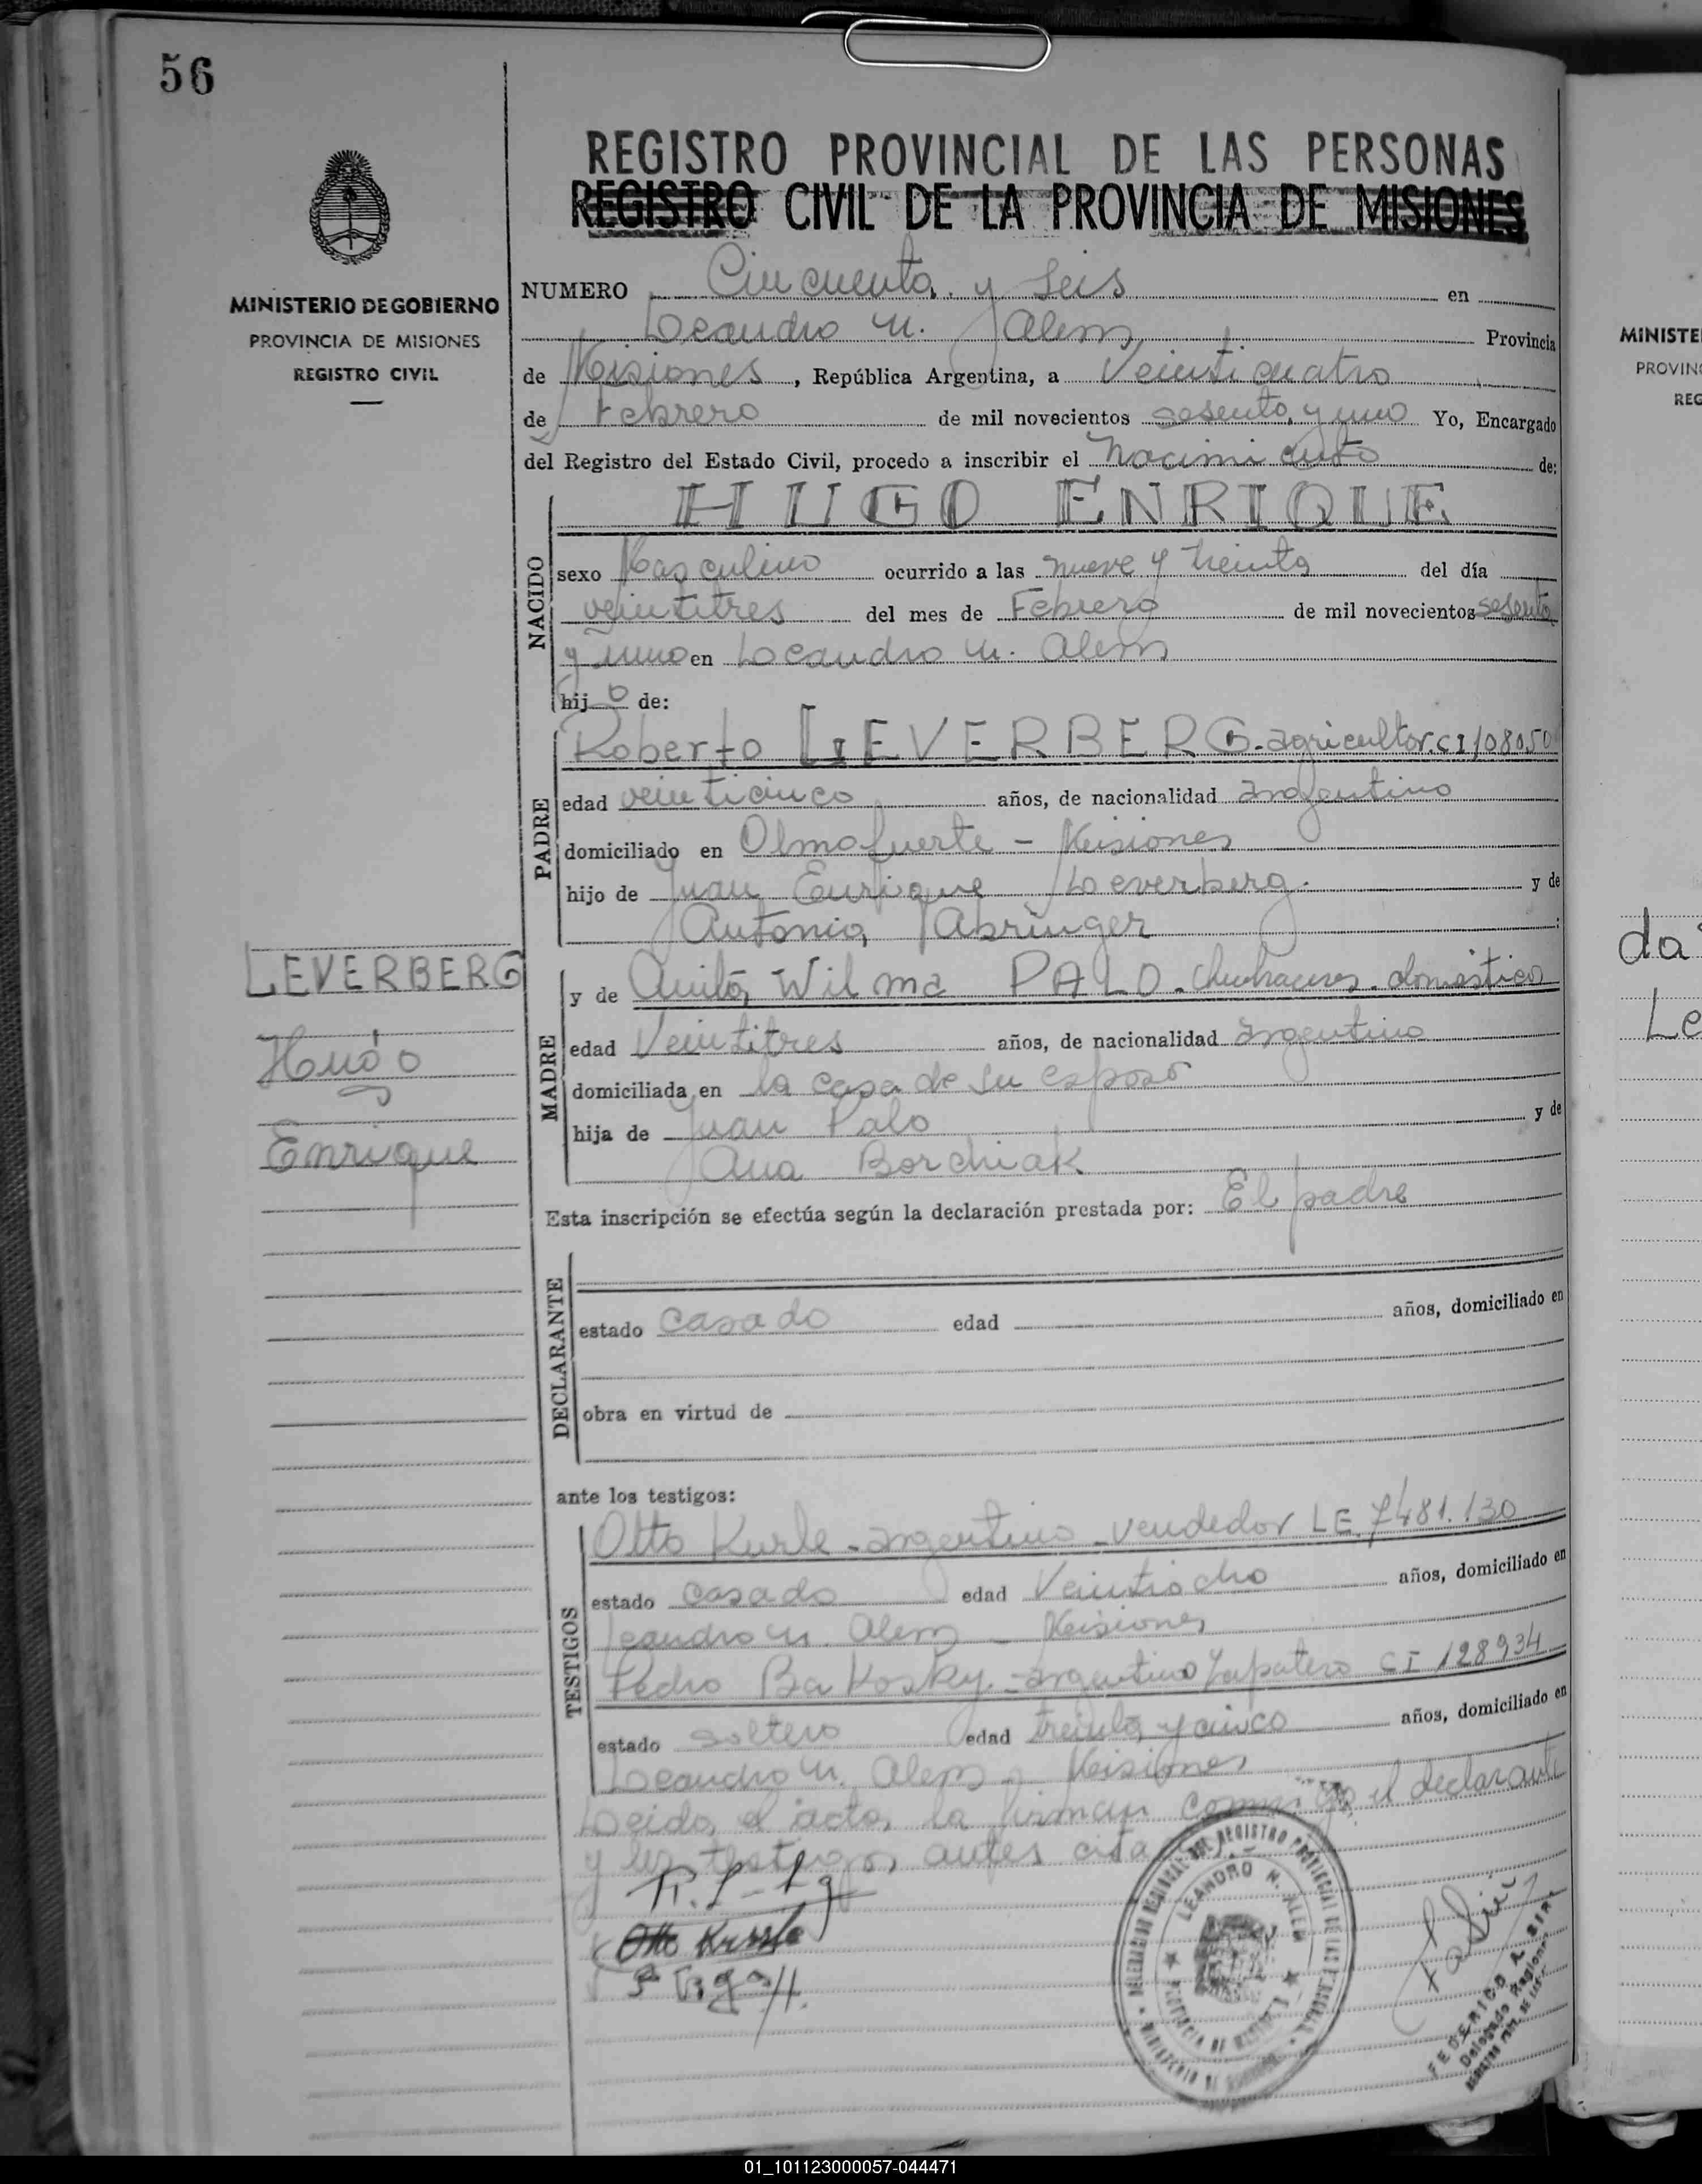 56
MINISTERIO DE GOBIERNO
PROVINCIA DE MISIONES
REGISTRO CIVIL
REGISTRO PROVINCIAL DE LAS PERSONAS
REGISTRO CIVIL DE LA PROVINCIA DE MISIONES
NUMERO Cincuenta y seis en
Leandro N. Alem Provincia
de Misiones, República Argentina, a Veinticuatro
de Febrero de mil novecientos sesenta y uno Yo, Encargado
del Registro del Estado Civil, procedo a inscribir el Nacimiento de:
NACIDO
HUGO ENRIQUE
sexo Masculino ocurrido a las nueve y treinta del día
veintitres del mes de Febrero de mil novecientos sesenta
y uno en Leandro N. Alem
hijo de:
PADRE
Roberto LEVERBERG. agricultor. CI 108050
edad veinticinco años, de nacionalidad argentino
domiciliado en Olmafuerte - Misiones
hijo de Juan Enrique Leverberg. y de
Antonia Abringer ;
LEVERBERG
Hugo
Enrique
MADRE
y de Anita Wilma PALO. Quehaceres. domésticos
edad Veintitres años, de nacionalidad argentina
domiciliada en la casa de su esposo
hija de Juan Palo y de
Ana Borchiak
Esta inscripción se efectúa según la declaración prestada por: El padre
DECLARANTE
estado casado edad años, domiciliado en
obra en virtud de
ante los testigos:
TESTIGOS
Otto Kurle - argentino - vendedor LE 7481.130
estado casado edad Veintiocho años, domiciliado en
Leandro N. Alem - Misiones
Pedro Bakosky - argentino Zapatero CI 128934
estado soltero edad treinta y cinco años, domiciliado en
Leandro N. Alem - Misiones
Leida el acta, la firman conmigo el declarante
y los testigos antes cita
Otto
LEANDRO N. ALEM
PROVINCIA DE MISIONES
MINISTERIO DE GOBIERNO
FEDERICO A.
Delegado Regional
MINISTE
PROVINC
REG
da
Le
01_101123000057-044471